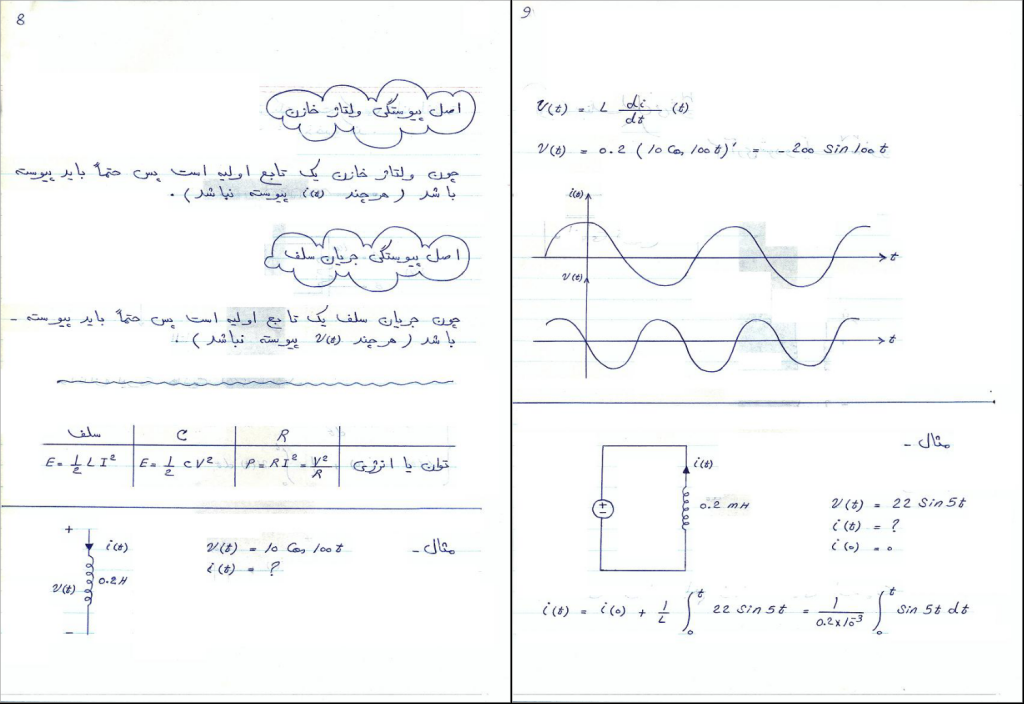 8
اصل پیوستگی ولتاژ خازن
چون ولتاژ خازن یک تابع اولیه است پس حتماً باید پیوسته
باشد (هرچند i(t) پیوسته نباشد).
اصل پیوستگی جریان سلف
چون جریان سلف یک تابع اولیه است پس حتماً باید پیوسته -
باشد (هرچند V(t) پیوسته نباشد).
سلف C R
E = 1/2 L I² E = 1/2 C V² P = RI² = V²/R توان یا انرژی
مثال -
+
i(t)
V(t) 0.2H
-
V(t) = 10 Cos 100t
i(t) = ?
9
V(t) = L di/dt (t)
V(t) = 0.2 (10 Cos 100t)' = -200 Sin 100t
i(t)
t
V(t)
t
مثال -
i(t)
+ -
0.2 mH
V(t) = 22 Sin 5t
i(t) = ?
i(0) = 0
i(t) = i(0) + 1/L ∫₀ᵗ 22 Sin 5t = 1/0.2×10⁻³ ∫₀ᵗ Sin 5t dt